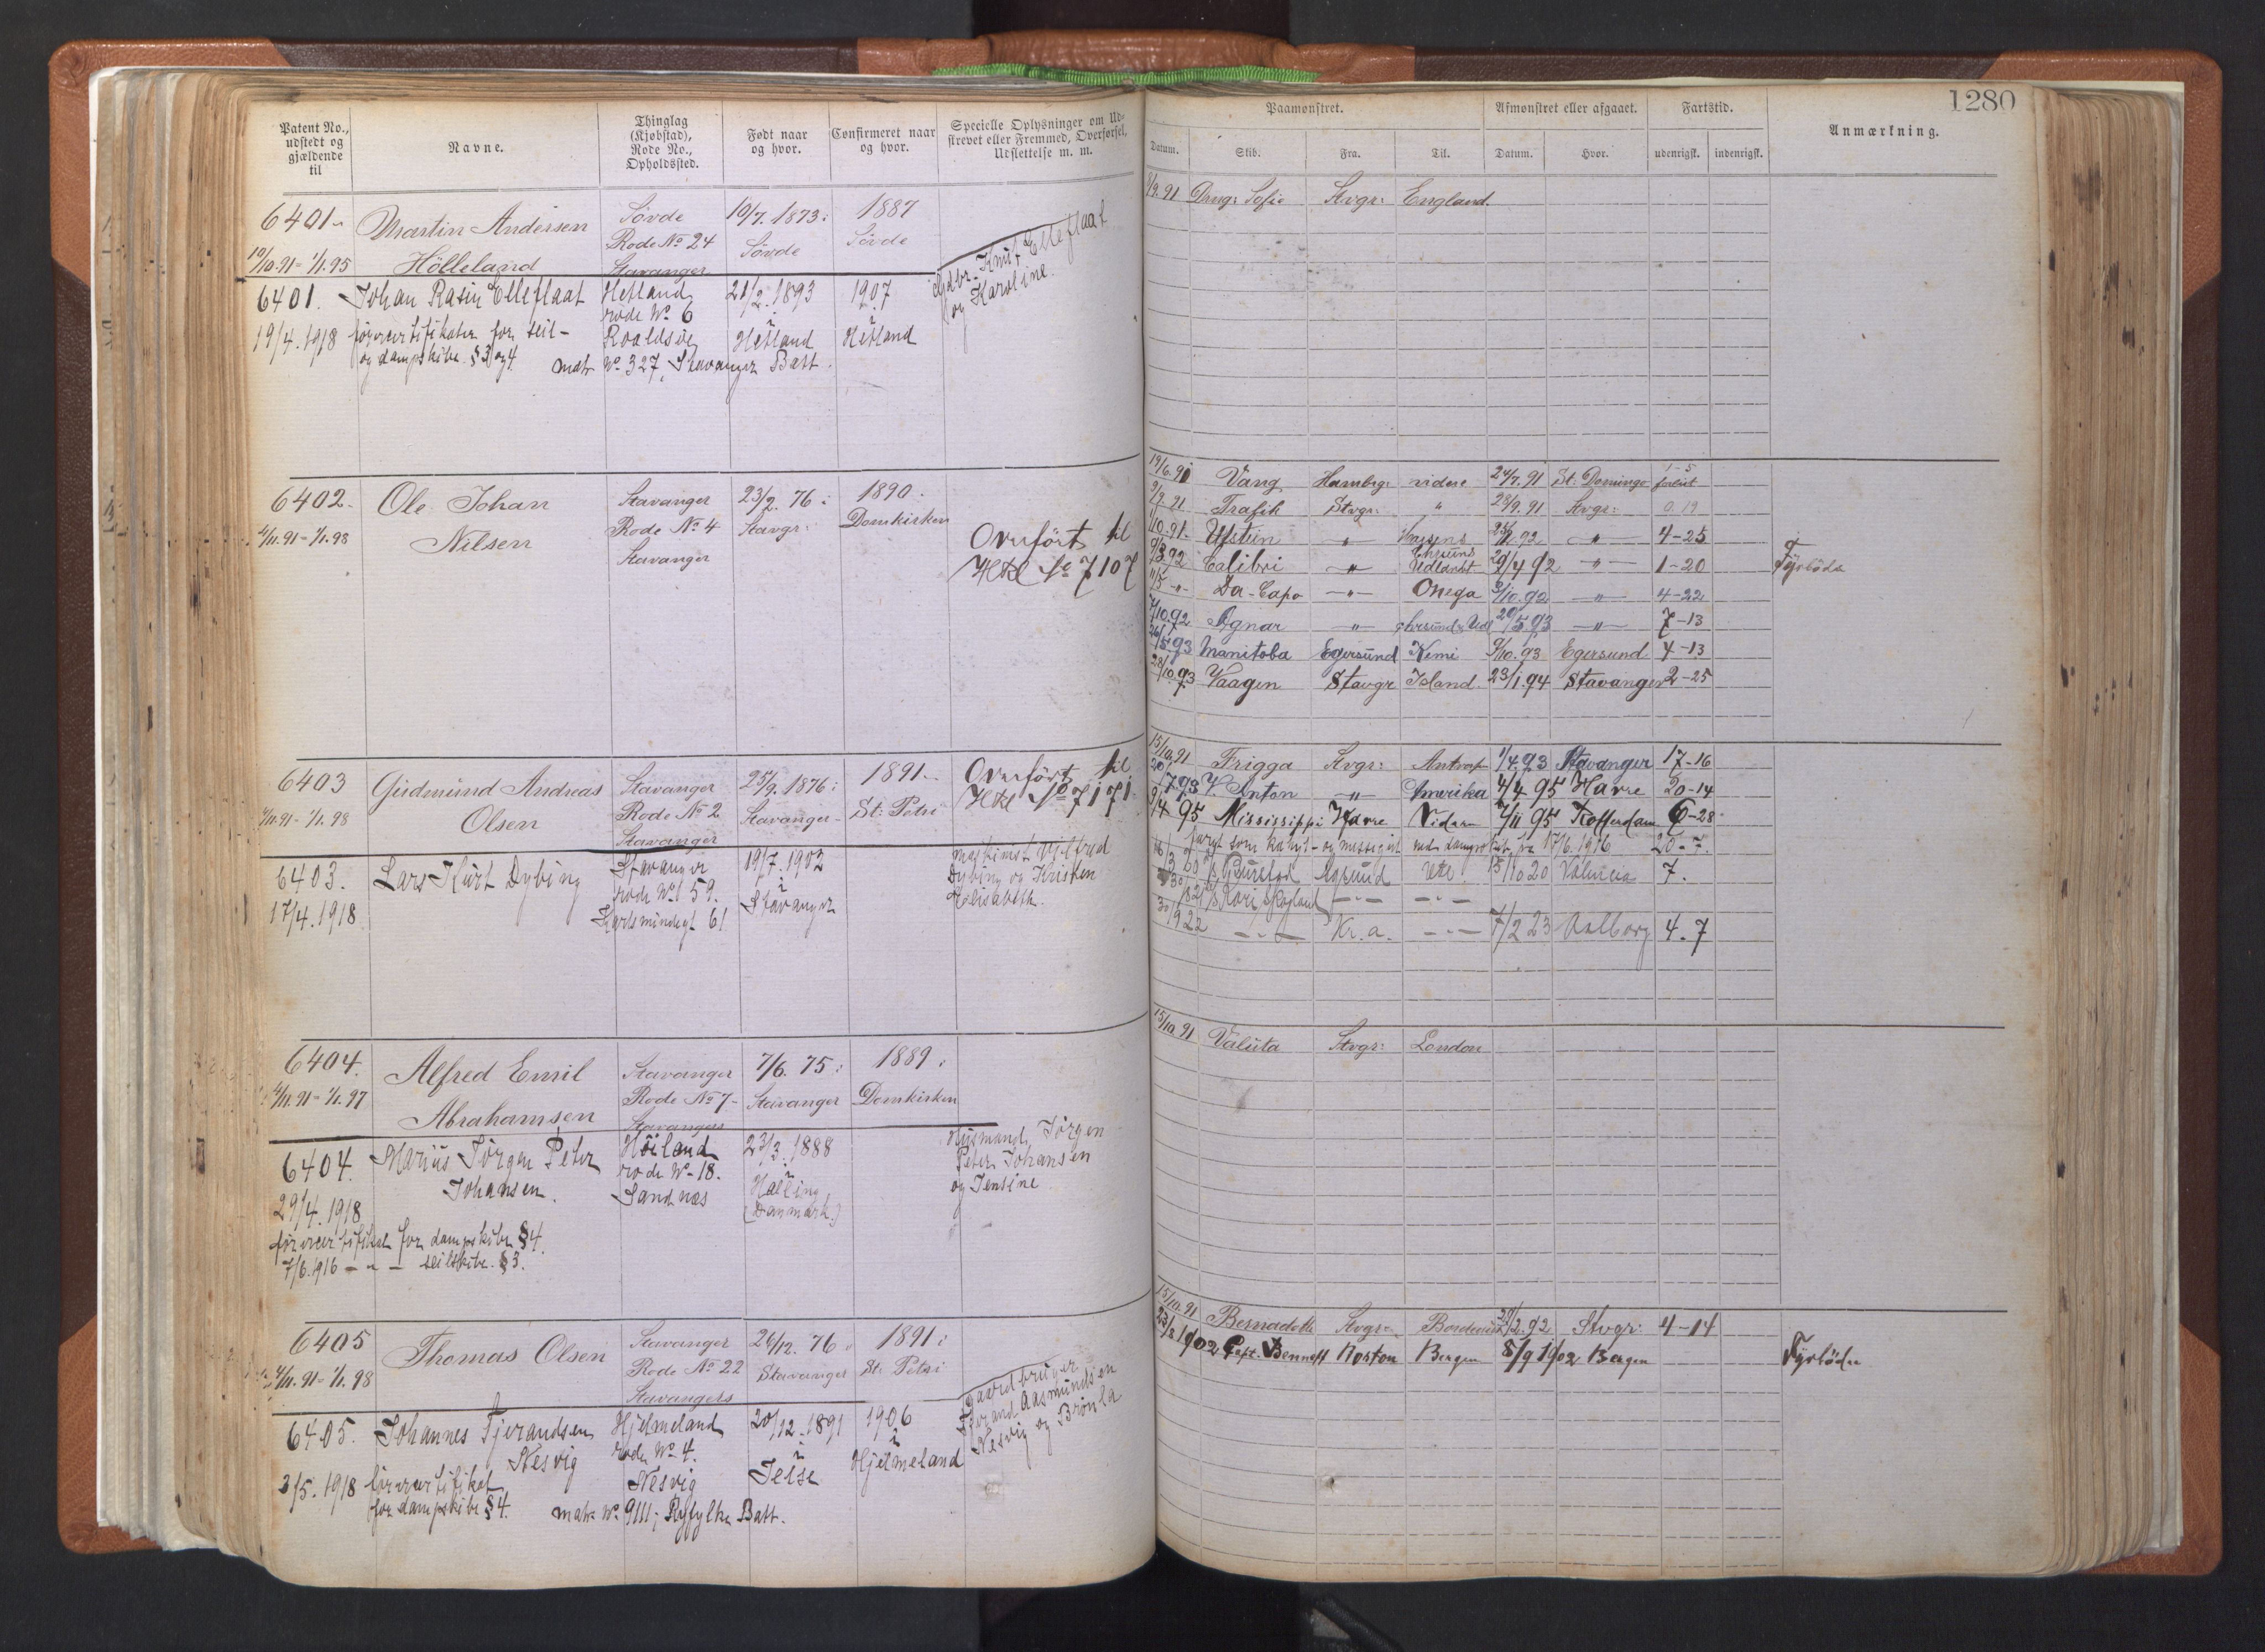 1280
Patent No., udstedt og gjældende til
Navne.
Thinglag (Kjøbstad), Rode No., Opholdssted.
Født naar og hvor.
Confirmeret naar og hvor.
Specielle Oplysninger om Udskrevet eller Fremmed, Overførsel, Udslettelse m. m.
Paamønstret.
Afmønstret eller afgaaet.
Fartstid.
Anmærkning.
Datum.
Skib.
Fra.
Til.
Datum.
Hvor.
udenrigsk.
indenrigsk.
6401
Martin Andersen
Hölleland
Søvde
Rode No 24
Stavanger
10/7. 1873:
Søvde
1887
Søvde
10/10.91 = 1/1.95
6401.
Johan Rasin Elleflaat
Hetland
rode No. 6
Roaldsøy
21/2. 1893
i
Hetland
1907
i
Hetland
Gdbr. Knut Elleflaat
og Karoline.
19/4. 1918
førercertifikater for seil-
og dampskibe. § 3 og 4.
matr No. 327, Stavanger Batt.
6402.
Ole Johan
Nilsen
Stavanger
Rode No 4
Stavanger
23/2. 76:
Stavgr:
1890.
Domkirken
Overført til
Hkl No 7107
4/11.91 = 1/1.98
6403
Gudmund Andreas
Olsen
Stavanger
Rode No 2
Stavanger
25/9. 1876:
Stavanger
1891.
St: Petri
Overført til
Hkl No 7171
4/11.91 - 1/1.98
6403.
Lars Kurt Dybing
Stavanger
rode No. 159.
Karlsmindegt 61
19/7. 1902
i
Stavanger
maskinist
Dybing og Kristen
Elisabeth.
17/4. 1918
6404.
Alfred Emil
Abrahamsen
Stavanger
Rode No 7
Stavanger
7/6. 75:
Stavanger
1889:
Domkirken
4/11.91 = 1/1.97
6404.
Marius Jörgen Peter
Johansen.
Höiland
rode No. 18.
Sandnæs
23/3. 1888
i
Halling
(Danmark.)
Husmand Jörgen
Peter Johansen
og Jensine
29/4. 1918
førercertifikat for dampskibe § 4.
7/6. 1916 — " — seilskibe. § 3.
6405
Thomas Olsen
Stavanger
Rode No 22
Stavanger
26/12. 76
Stavanger
1891:
St: Petri
4/11.91 = 1/1.98
6405.
Johannes Tjerandsen
Nesvig
Hjelmeland
rode No. 4.
Nesvig
20/12. 1891
i
Jelse
1906
i
Hjelmeland
gaardbruger
Tjerand Aasmundsen
Nesvig og Brønla
3/5. 1918
førercertifikat
for dampskibe § 4.
matr No. 9111; Ryfylke Batt.
8/9. 91 Drag: Sofie Stvgr: England.
19/6.91 Vang Hambrg: videre 24/7. 91 St: Domingo forlist 1-5
Trafik Stvgr: " 28/9. 91 Stvgr: 0.19
Utstein " 4-25
Calibri " Udlandet 29/4 92 " 1-20
11/5 " Da-Capo " Onega 3/10. 92 " 4-22
7/10.92 Agnar " 20/5 93 " 7-13
26/5.93 Manitoba Egersund Kemi 9/10. 93 Egersund 4-13
28/10.93 Vaagen Stavgr Island. 23/1. 94 Stavanger 2-25
Fyrböder
15/10.91 Frigga Stvgr: Antverp 1/4.93 Stavanger 17-16
20/7 93 V. Anton " Amerika 4/4 95 Havre 20-14
9/4 95 Mississippi Havre Videre 7/11 95 Rotterdam 6-28
17/6. 1916 20-7.
16/3 20 Ugsund Ute 15/10 20 Valencia 7.
Kari Skogland — " — — " —
30/9 22 — " — Kr.a. — " — 7/2 23 Aalborg 4-7
15/10.91 Valuta Stvgr: London
15/10.91 Bernadotte Stvgr: Bordeaux 29/2. 92 Stvgr: 4-14
23/8 1902 Capt. Bennett Norton Bergen 8/9 1902 Bergen
Fyrböder